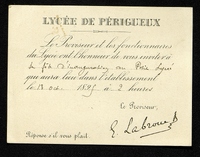 LYCÉE DE PÉRIGUEUX
Le Proviseur et les fonctionnaires
du Lycée ont l'honneur de vous inviter à
la d'inauguration du Petit Lycée
qui aura lieu dans l'établissement
le 13 oct. 1895 à 2 heures
Le Proviseur,
G. Labrousse
Réponse s'il vous plaît.